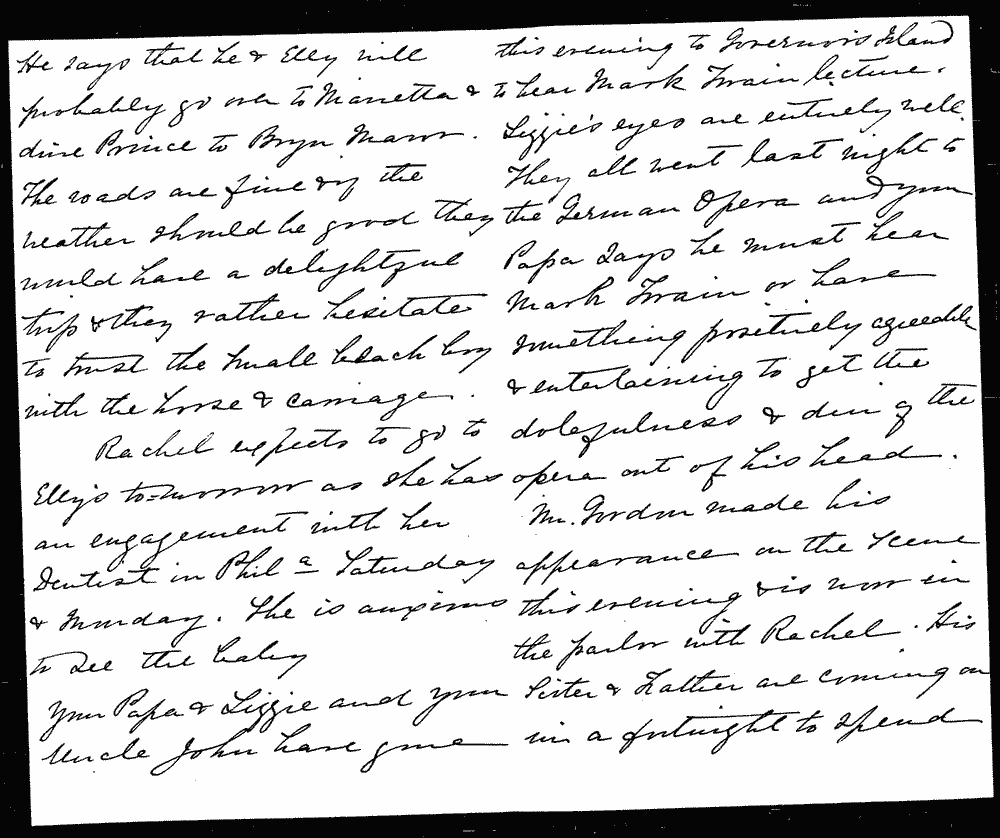 He says that he & Elly will
probably go over to Marietta &
drive Prince to Bryn Mawr.
The roads are fine & if the
weather should be good they
would have a delightful
trip & they rather hesitate
to trust the small black boy
with the horse & carriage.
Rachel expects to go to
Elly's to-morrow as she has
an engagement with her
Dentist in Phil a Saturday
& Monday. She is anxious
to see the baby
Your Papa & Lizzie and your
Uncle John have gone
this evening to Governor's Island
to hear Mark Twain lecture.
Lizzie's eyes are entirely well.
They all went last night to
the German Opera and your
Papa says he must hear
Mark Twain or have
something positively agreeable
& entertaining to get the
dolefulness & din of the
opera out of his head.
Mr. Gordon made his
appearance on the scene
this evening & is now in
the parlor with Rachel. His
Sister & Father are coming on
in a fortnight to spend